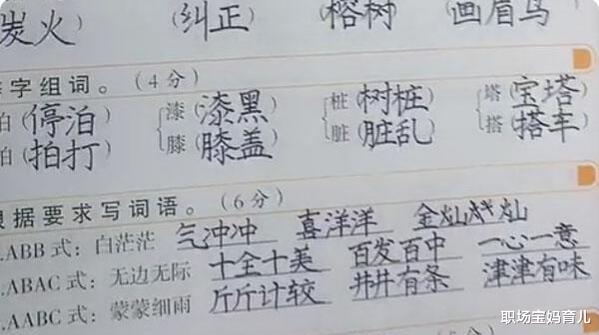 炭火） （纠正） （榕树） （画眉鸟）
字组词。（4分）
泊（停泊） 漆（漆黑） 桩（树桩） 塔（宝塔）
拍（拍打） 膝（膝盖） 脏（脏乱） 搭（搭车）
根据要求写词语。（6分）
.ABB式：白茫茫 气冲冲 喜洋洋 金灿灿
.ABAC式：无边无际 十全十美 百发百中 一心一意
.AABC式：蒙蒙细雨 斤斤计较 井井有条 津津有味
职场宝妈育儿